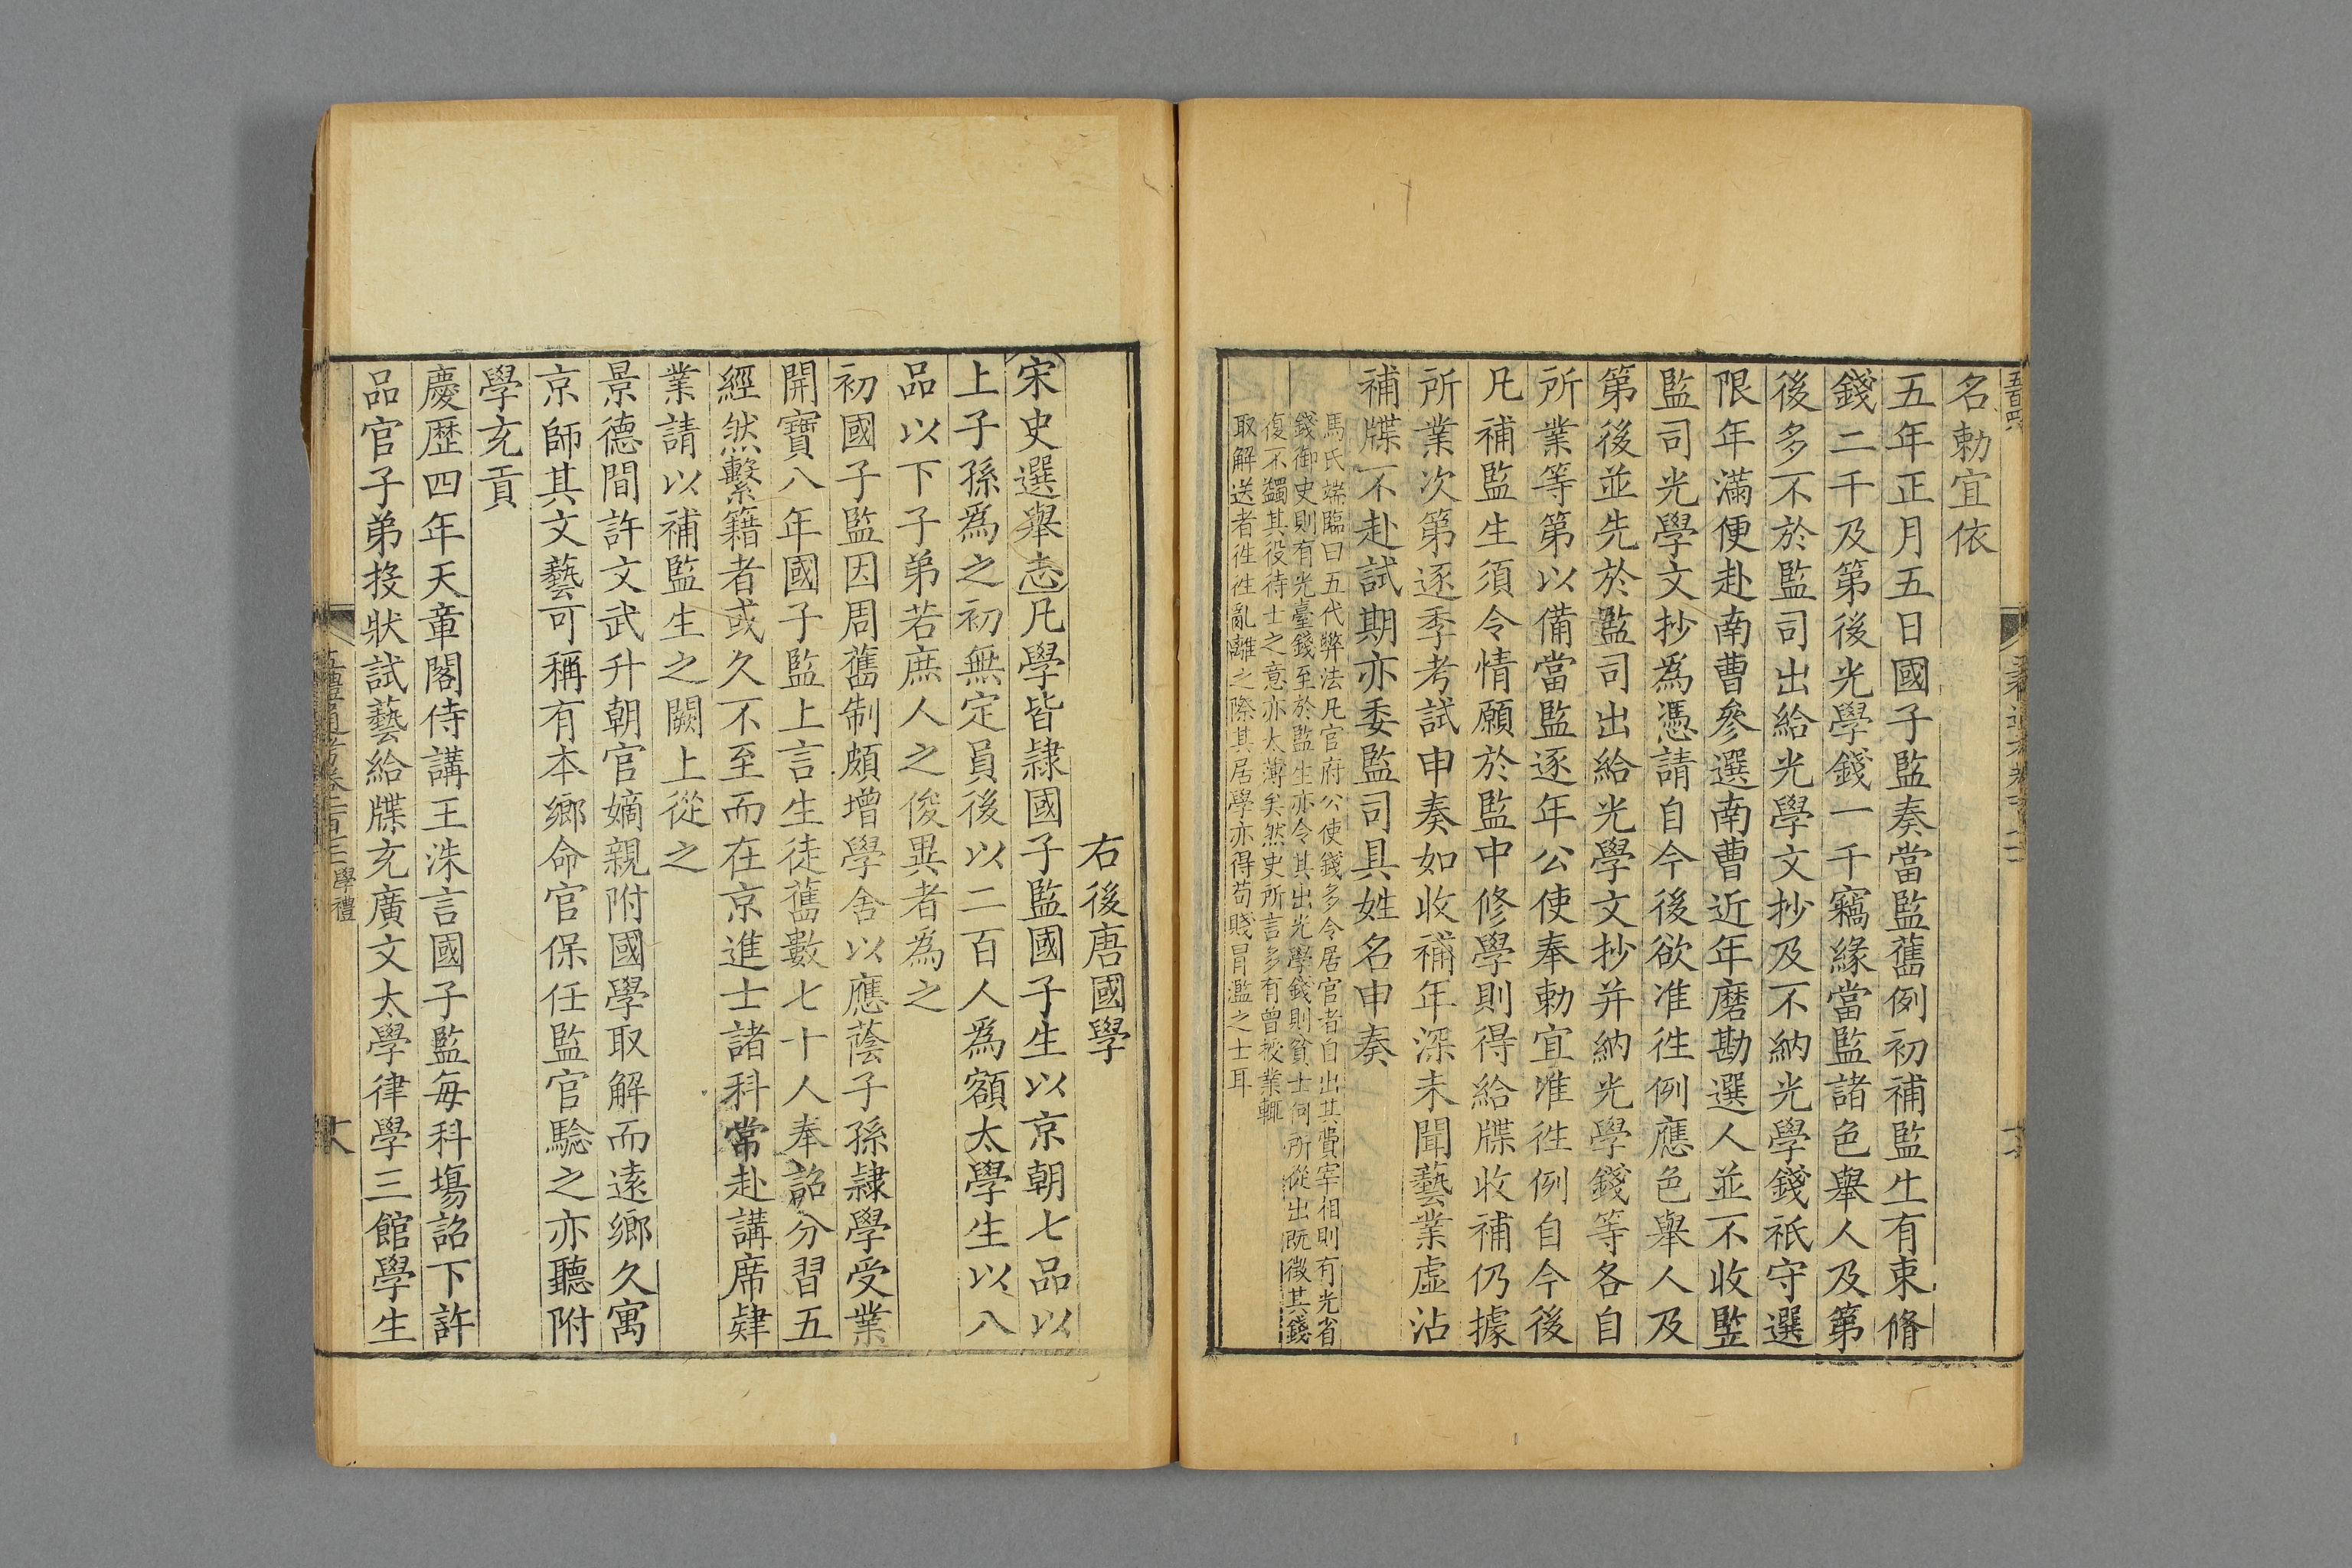 名勅宜依
五年正月五日國子監奏當監舊例初補監生有束脩
錢二千及第後光學錢一千竊緣當監諸色舉人及第
後多不於監司出給光學文抄及不納光學錢祇守選
限年滿便赴南曹參選南曹近年磨勘選人並不收監
監司光學文抄為憑請自今後欲准徃例應色舉人及
第後並先於監司出給光學文抄并納光學錢等各自
所業等第以備當監逐年公使奉勅宜准徃例自今後
凡補監生須令情願於監中修學則得給牒收補仍據
所業次第逐季考試申奏如收補年深未聞藝業虛沾
補牒不赴試期亦委監司具姓名申奏
馬氏端臨曰五代弊法凡官府公使錢多令居官者自出其費宰相則有光省
錢御史則有光臺錢至於監生亦令其出光學錢則貧士何所從出既徵其錢
復不蠲其役待士之意亦太薄矣然史所言多有曾被業輒
取解送者徃徃亂離之際其居學亦得苟賤冒濫之士耳
右後唐國學
宋史選舉志凡學皆隷國子監國子生以京朝七品以
上子孫爲之初無定員後以二百人爲額太學生以八
品以下子弟若庶人之俊異者爲之
初國子監因周舊制頗增學舍以應蔭子孫隷學受業
開寶八年國子監上言生徒舊數七十人奉詔分習五
經然繫籍者或久不至而在京進士諸科常赴講席肄
業請以補監生之闕上從之
景德間許文武升朝官嫡親附國學取解而遠鄉久寓
京師其文藝可稱有本鄉命官保任監官驗之亦聽附
學充貢
慶歴四年天章閣侍講王洙言國子監每科塲詔下許
品官子弟投狀試藝給牒充廣文太學律學三館學生
五禮通考卷一百七十一 學禮